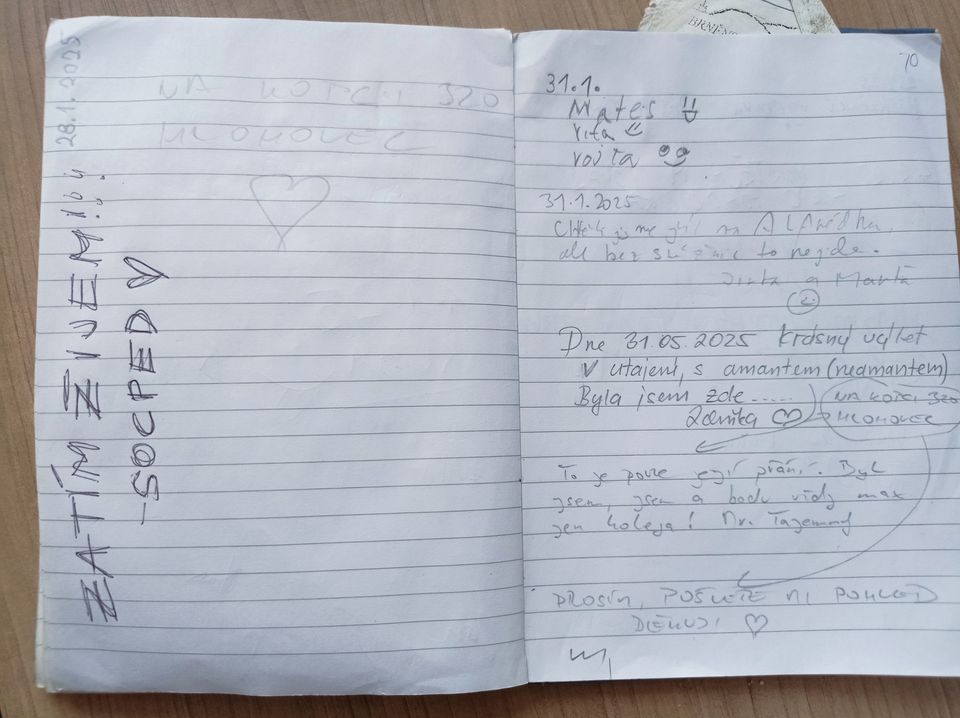 28.1.2025
ZATÍM ŽIJEME!!
-SOCPED
NA KOPCI 320
HLOHOVEC
BRNĚNS
70
31.1.
Mates
Vita
Vojta
31.1.2025
Chtěli jsme jít na
ale bez to nejde.
Jirka a Marta
Dne 31.05.2025 Krásný výlet
v utajení, s amantem (neamantem)
Byla jsem zde.....
NA KOPCI 320
HLOHOVEC
To je pouze její přání. Byl
jsem, jsem a budu vždy max
jen kolega! Mr. Tajemný
PROSÍM, POŠLETE MI POHLED
DĚKUJI